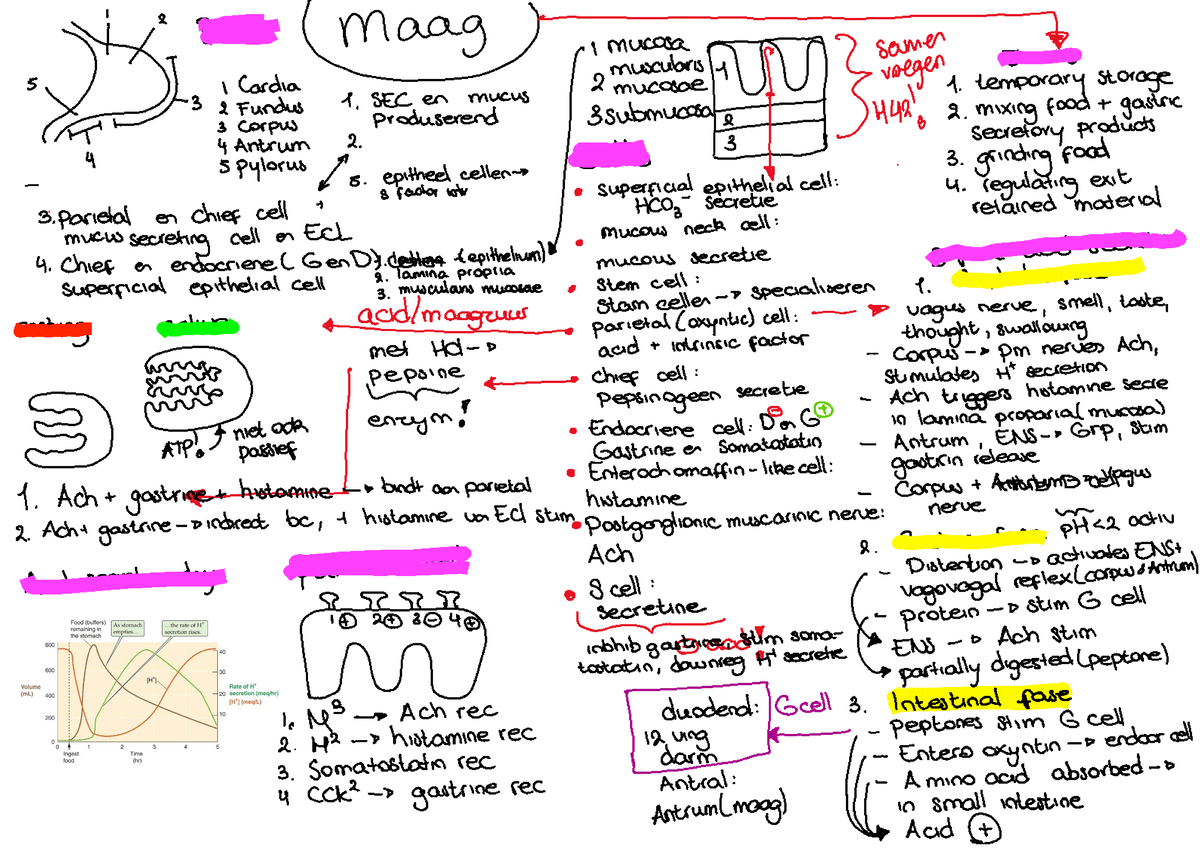 Maag
1
2
5
3
4
1 Cardia
2 Fundus
3 Corpus
4 Antrum
5 Pylorus
1. SEC en mucus
produserend
2.
3. epitheel cellen→
3. Parietal en chief cell
mucus secreting cell en ECL
4. Chief en endocriene (G en D)
superficial epithelial cell
1 mucosa
muscularis
2 mucosae
3 submucosa
1
2
3
samen
voegen
H42!
(epithelium)
2. lamina propria
3. muscularis mucosae
superficial epithelial cell:
HCO3⁻ secretie
mucous neck cell:
mucous secretie
stem cell:
stam cellen → specialiseren
parietal (oxyntic) cell:
acid + intrinsic factor
chief cell:
pepsinogeen secretie
Endocriene cell: D en G
- +
Gastrine en somatostatin
Enterochomaffin-like cell:
histamine
Postganglionic muscarinic nerve:
Ach
S cell:
secretine
inbhib gastrine, stim soma-
tostatin, downreg H⁺ secretie
acid/maagzuur
met Hcl →
pepsine
enzym!
ATP!
niet ook
passief
1. Ach + gastrine + histamine → bindt aan parietal
2. Ach + gastrine → indirect bc, + histamine van Ecl stim
1. temporary storage
2. mixing food + gastric
secretory products
3. grinding food
4. regulating exit
retained material
1.
vagus nerve, smell, taste,
thought, swallowing
- Corpus → pm nerves Ach,
stimulates H⁺ secretion
- Ach triggers histamine secre
in lamina proparia (mucosa)
- Antrum, ENS → Grp, stim
gastrin release
- Corpus +
nerve
pH<2 activ
2.
- Distention → activates ENS+
vagovagal reflex (corpus & Antrum)
- protein → stim G cell
ENS → Ach stim
partially digested (peptone)
3. Intestinal fase
- Peptones stim G cell
- Entero oxyntin → endocr cell
- Amino acid absorbed →
in small intestine
Acid +
duodend:
12 ving
darm
G cell
Antral:
Antrum (maag)
1 + 2 + 3 - 4 +
1. M3 → Ach rec
2. H2 → histamine rec
3. Somatostatin rec
4 CCK2 → gastrine rec
Food (buffers)
remaining in
the stomach
As stomach
empties...
...the rate of H⁺
secretion rises.
[H⁺]
Volume
(mL)
800
600
400
200
0
40
30
20
10
Rate of H⁺
secretion (meq/hr)
[H⁺] (meq/L)
0 1 2 3 4 5
Ingest
food
Time
(hr)